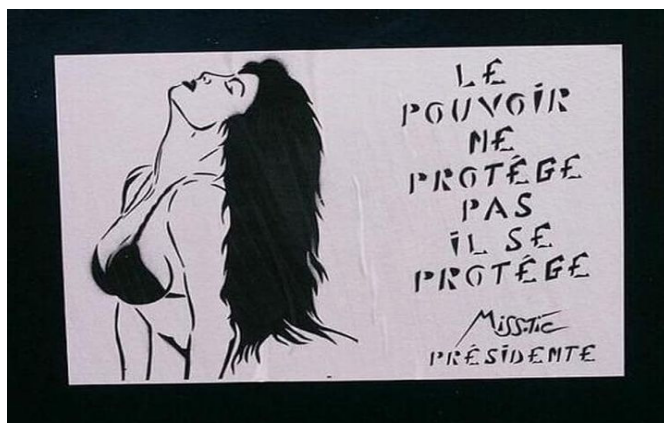 LE
POUVOIR
NE
PROTÉGE
PAS
IL SE
PROTÉGE
Miss.Tic
PRÉSIDENTE